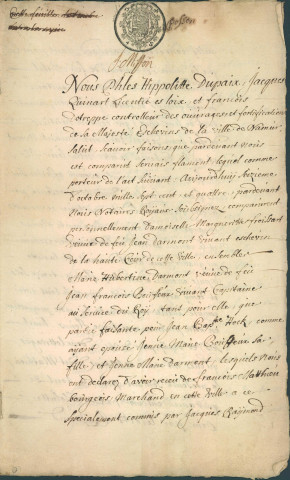 Nous Philes hippolitte Dupaix, Jacques
Quinart Licentié es loix et francois
dotreppe controlleur des ouvrages et fortifications
de sa Majesté Eschevins de la ville de Namur
salut, scavoir faisons que pardevant nous
est comparut Servais flaucent, lequel comme
porteur de l'acte suivant, Aujourdhuy seizieme
d'octobre mille sept cent et quattre, pardevant
Nous Notaires Royaux soubsignez comparurent
personnellement Damoiselle Marguerite froissart
veuve de feu Jean Darmont vivant eschevin
de la haute Cour de cette Ville, ensembles
Marie Hubertine Darmont veuve de feu
Jean francois vivant Capitaine
au service du Roy, tant pour elle que
partie faisante pour Jean Bapte. Hock, comme
ayant epousé Jenne Marie sa
fille, et Jenne Marie Darmont, lesquels Nous
ont declarez d'avoir receu de francois Matthieu
bourgeois Marchand en cette Ville a ce
specialement commis par Jacques Raymond